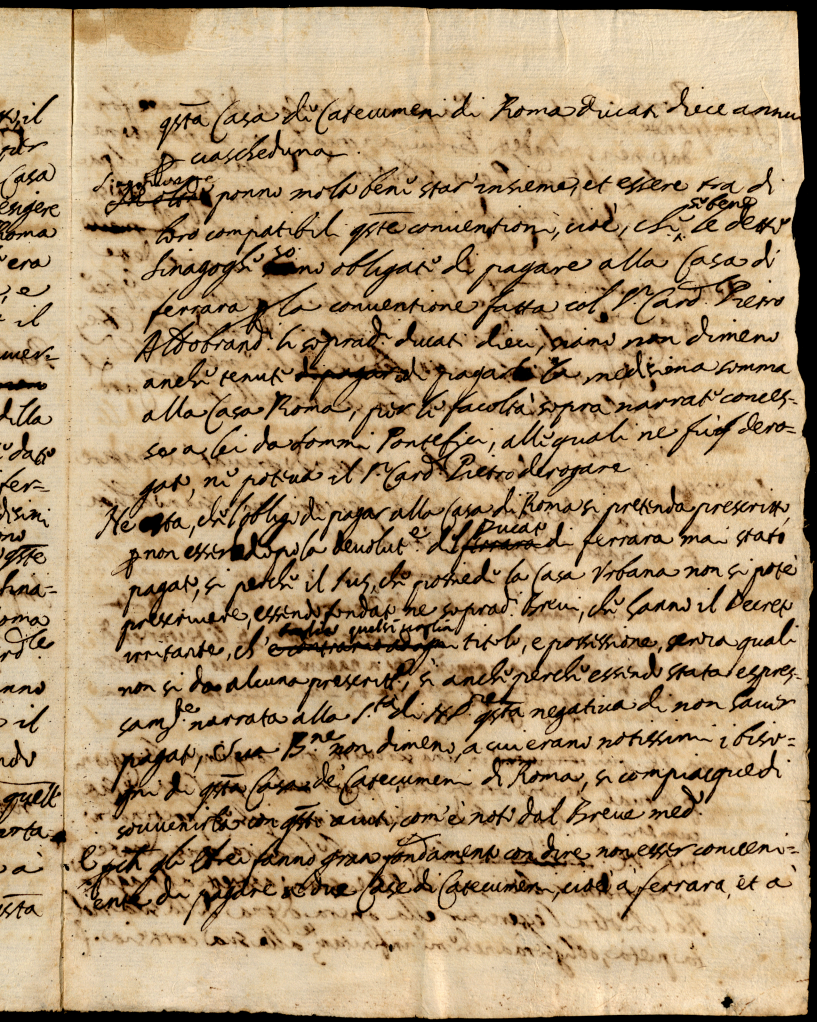 qsta Casa di Catecumeni di Roma Ducati diece annui
p ciascheduna.
ponno molto bene star' insieme, et essere tra di
loro compatibili qste conventioni, cioè, che se bene le dette
Sinagoghe sono obligate di pagare alla Casa di
ferrara p la conventione fatta col S.r Card. Pietro
Aldobrand.o li soprad.i ducati dieci, siano non dimeno
anche tenute di pagar la medesima somma
alla Casa Roma, per le facoltà sopra narrate conces-
se a lei da sommi Pontefici, alle quali ne fù dero-
gato, ne poteva il S.r Card. Pietro derogare.
Ne osta, che l'obligo di pagar alla Casa di Roma si pretenda prescritto,
p non essere dopo la devolut.e del Ducato di ferrara mai stato
pagato, si perche il Ius, che possiede la Casa Urbana non si potè
prescrivere, essendo fondato ne soprad.i Brevi, che hanno il Decreto
irritante, ch' titolo, e possessione, senza quali
non si da alcuna prescritt.e, si anche perche essendo stata espres-
sam.te narrata alla S.tà di qsta negativa di non haver
pagato, Sua B.ne non dimeno, a cui erano notissimi i biso-
gni di qsta Casa de Catecumeni di Roma, si compiacque di
souvenirla con qsti aiuti, com' è noto dal Breve med.o
E pche gli Ebrei fanno gran fondamento con dire, non esser conveni-
ente di pagare a due Case di Catecumeni, cioè à ferrara, et à